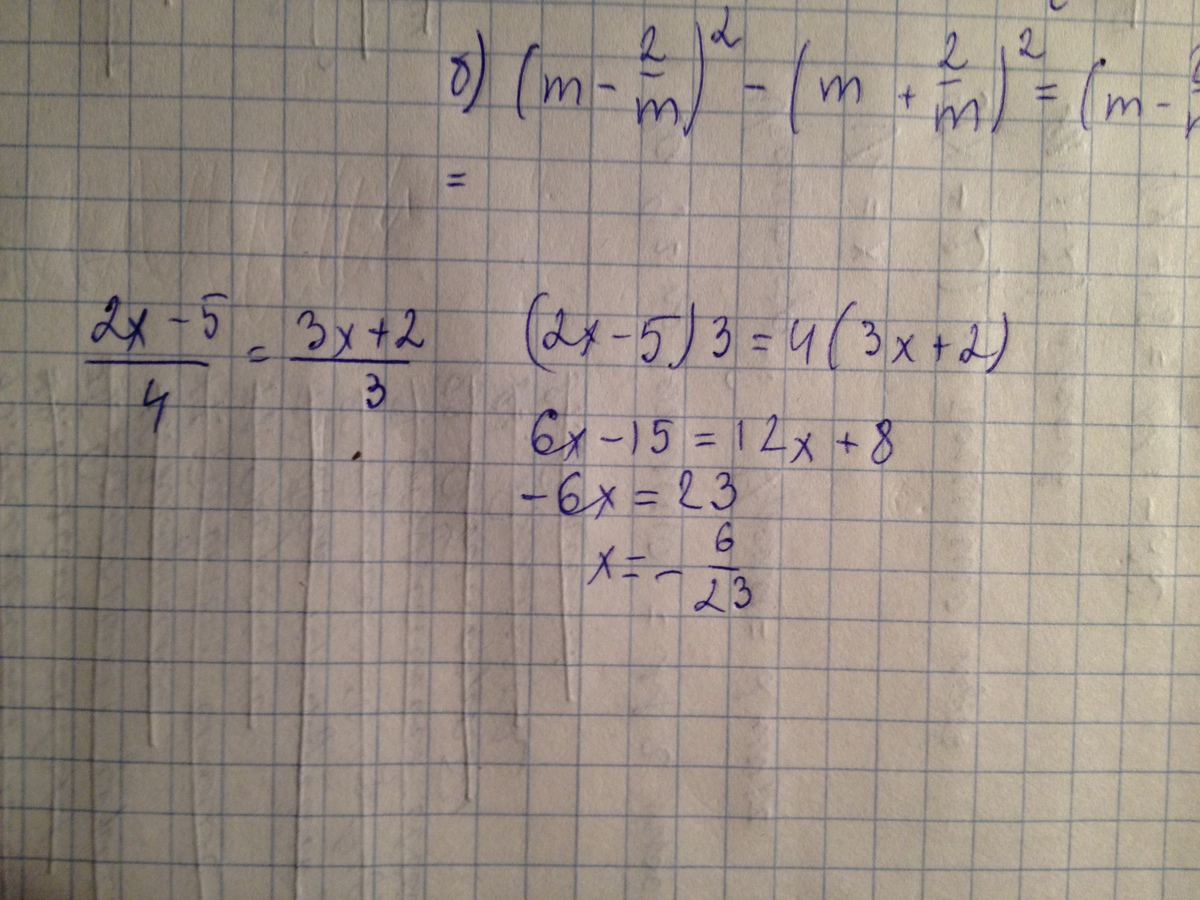 б) (m - 2/m)² - (m + 2/m)² = (m -
=
(2x - 5)/4 = (3x + 2)/3
(2x - 5) 3 = 4 (3x + 2)
6x - 15 = 12x + 8
- 6x = 23
x = - 6/23